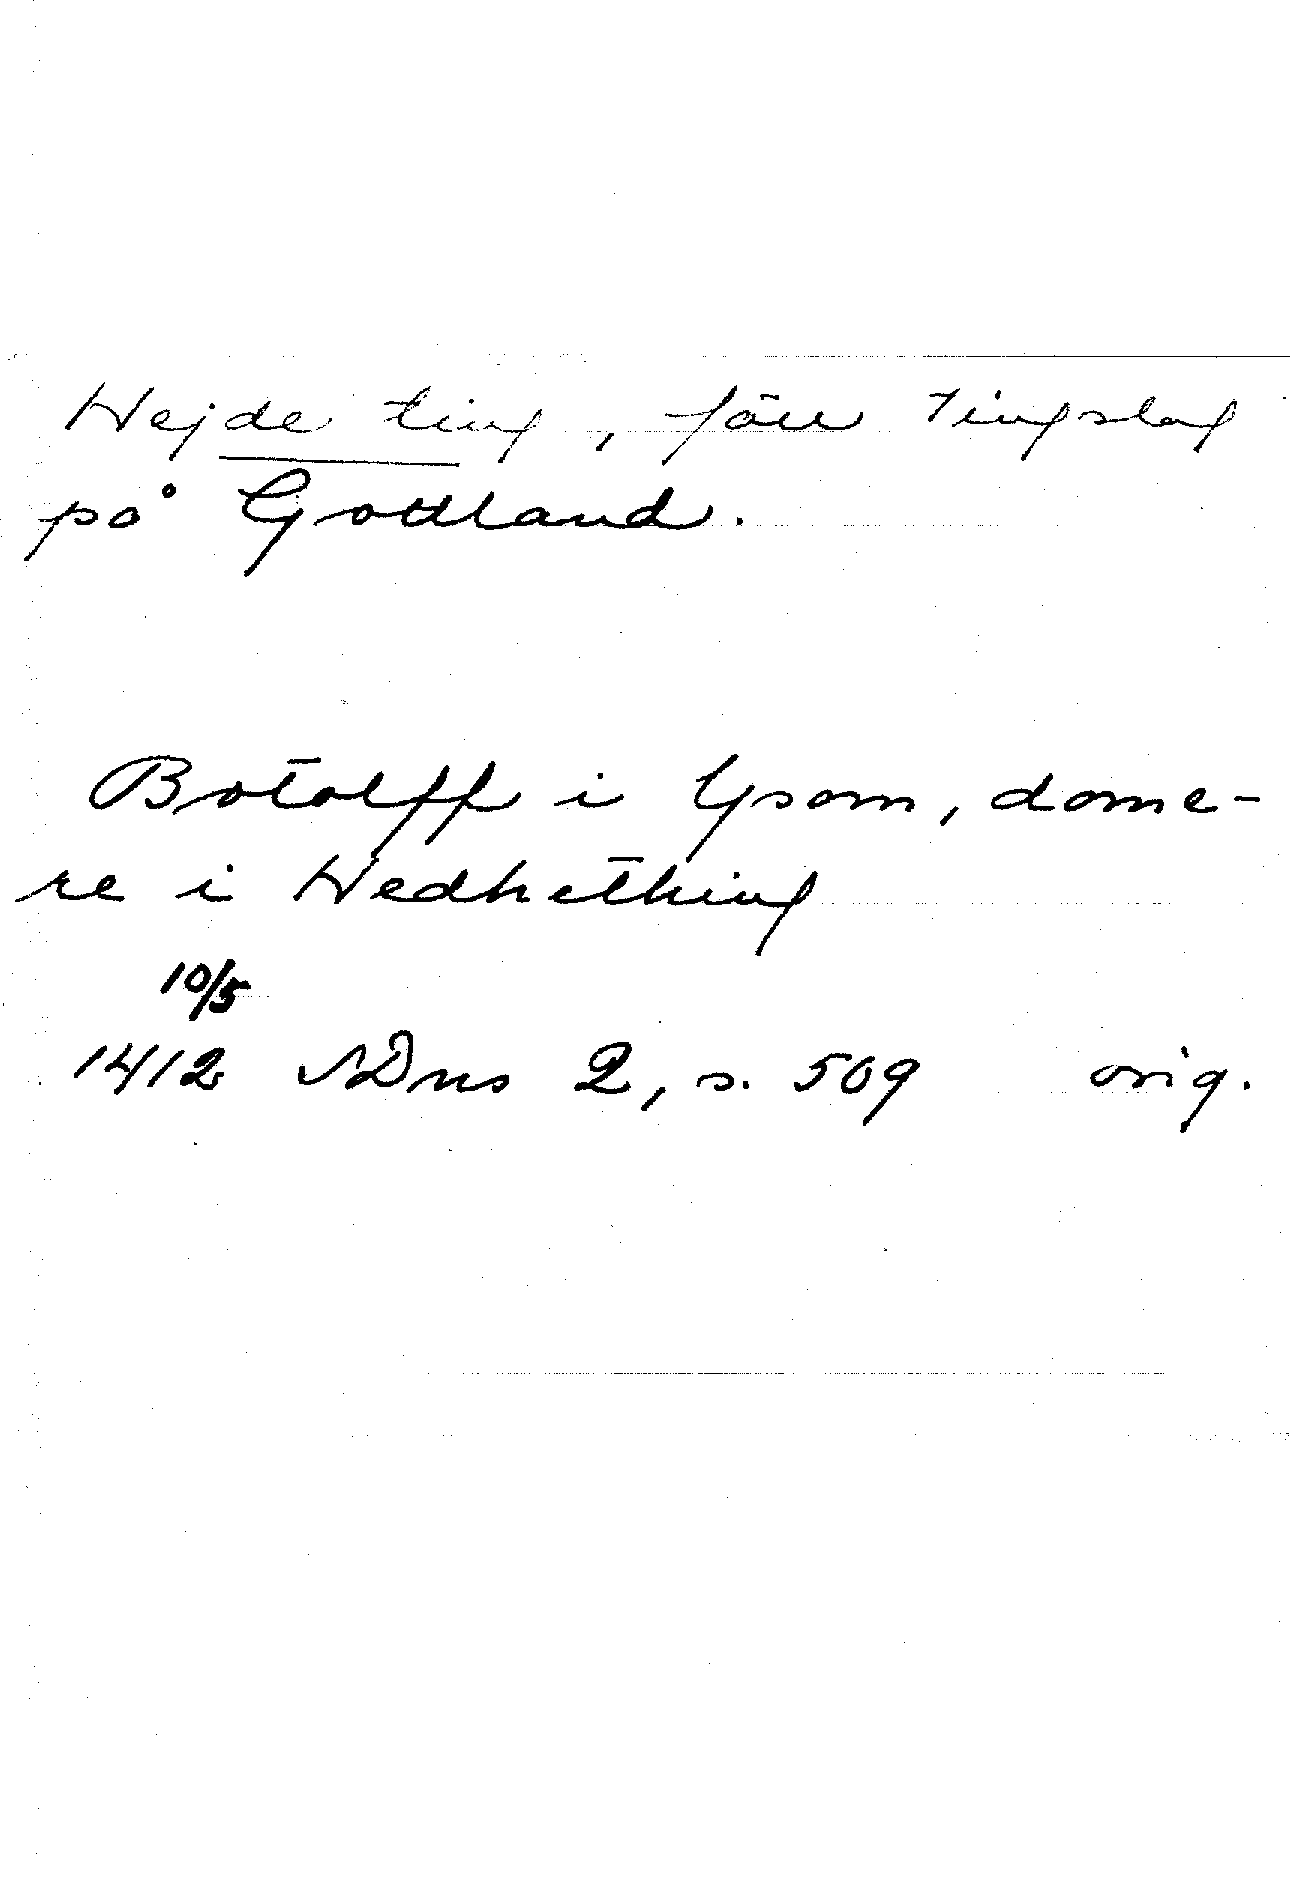 Hejde ting, förr tingslag
på Gottland.
Botolff i Ysom, dome-
re i Hedhething
10/5
1412 SDns 2, s. 509 orig.